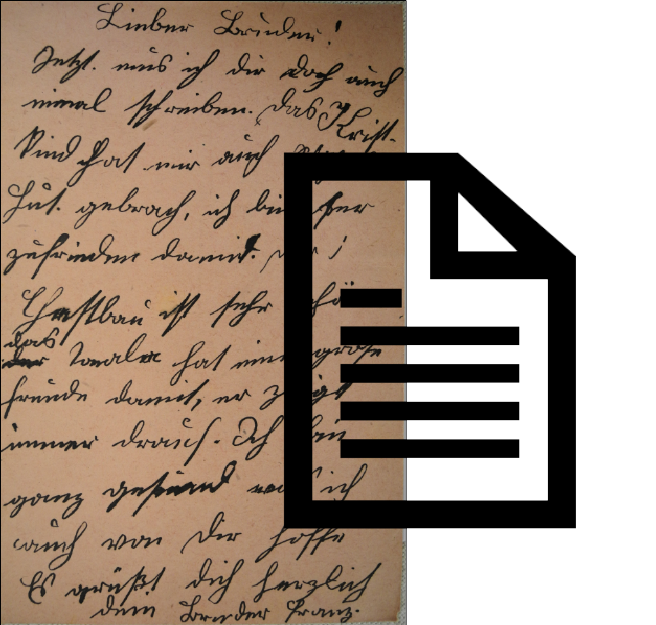 Lieber Bruder!
Jetzt. mus ich dir doch auch
einmal schreiben. das Krist.
Kind hat mir auch
Hut. gebrach, ich bin ser
zufrieden damit.
Chrstbau ist sehr schö
das
hat eine große
freude damit, er zeigt
immer drauf. Ich bin
ganz gesund was ich
auch von dir hoffe
Es grüßt dich herzlich
dein Bruder Franz.